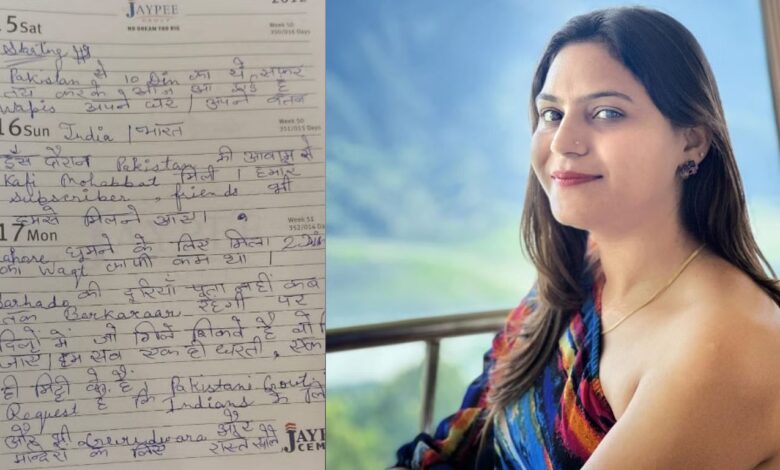 JAYPEE
GROUP
NO DREAM TOO BIG
5 Sat
Week 50
350/016 Days
Pakistan से 10 Din का ये सफर
तय करके आज आ रहे है
Wapis अपने घर। अपने वतन
16 Sun
India । भारत
Week 50
351/015 Days
इस दौरान Pakistan की आवाम से
Kafi Mohabbat मिली। हमारे
subscriber, friends भी
हमसे मिलने आए।
17 Mon
Week 51
352/014 Days
Lahore घुमने के लिए मिला 2 Din
का Waqt काफी कम था।
Sarhado की दूरियाँ पता नहीं कब
तक Barkaraar रहेंगी पर
दिलों में जो गिले शिकवे है वो
जाए। हम सब एक ही धरती, एक
ही मिट्टी के है। Pakistani
Request है कि Indians के
और भी Gurudwara और
मन्दिरों के लिए रास्ते खोले
JAYPEE
CEM